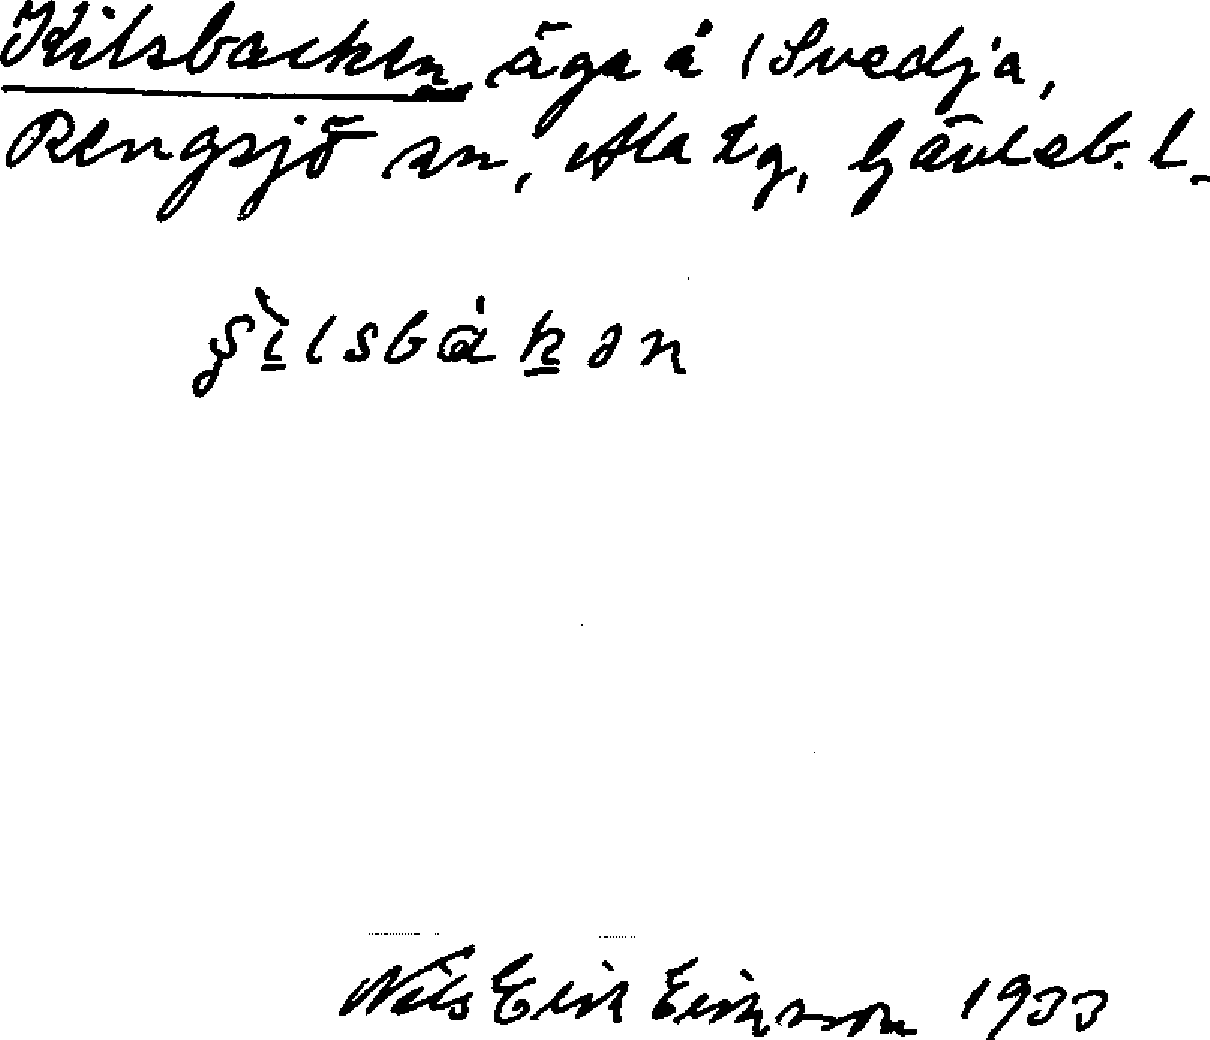 Kilsbacken, äga å Svedja,
Rengsjö sn, Ala tg, Gävleb. l.
Nils Erik Eriksson 1933